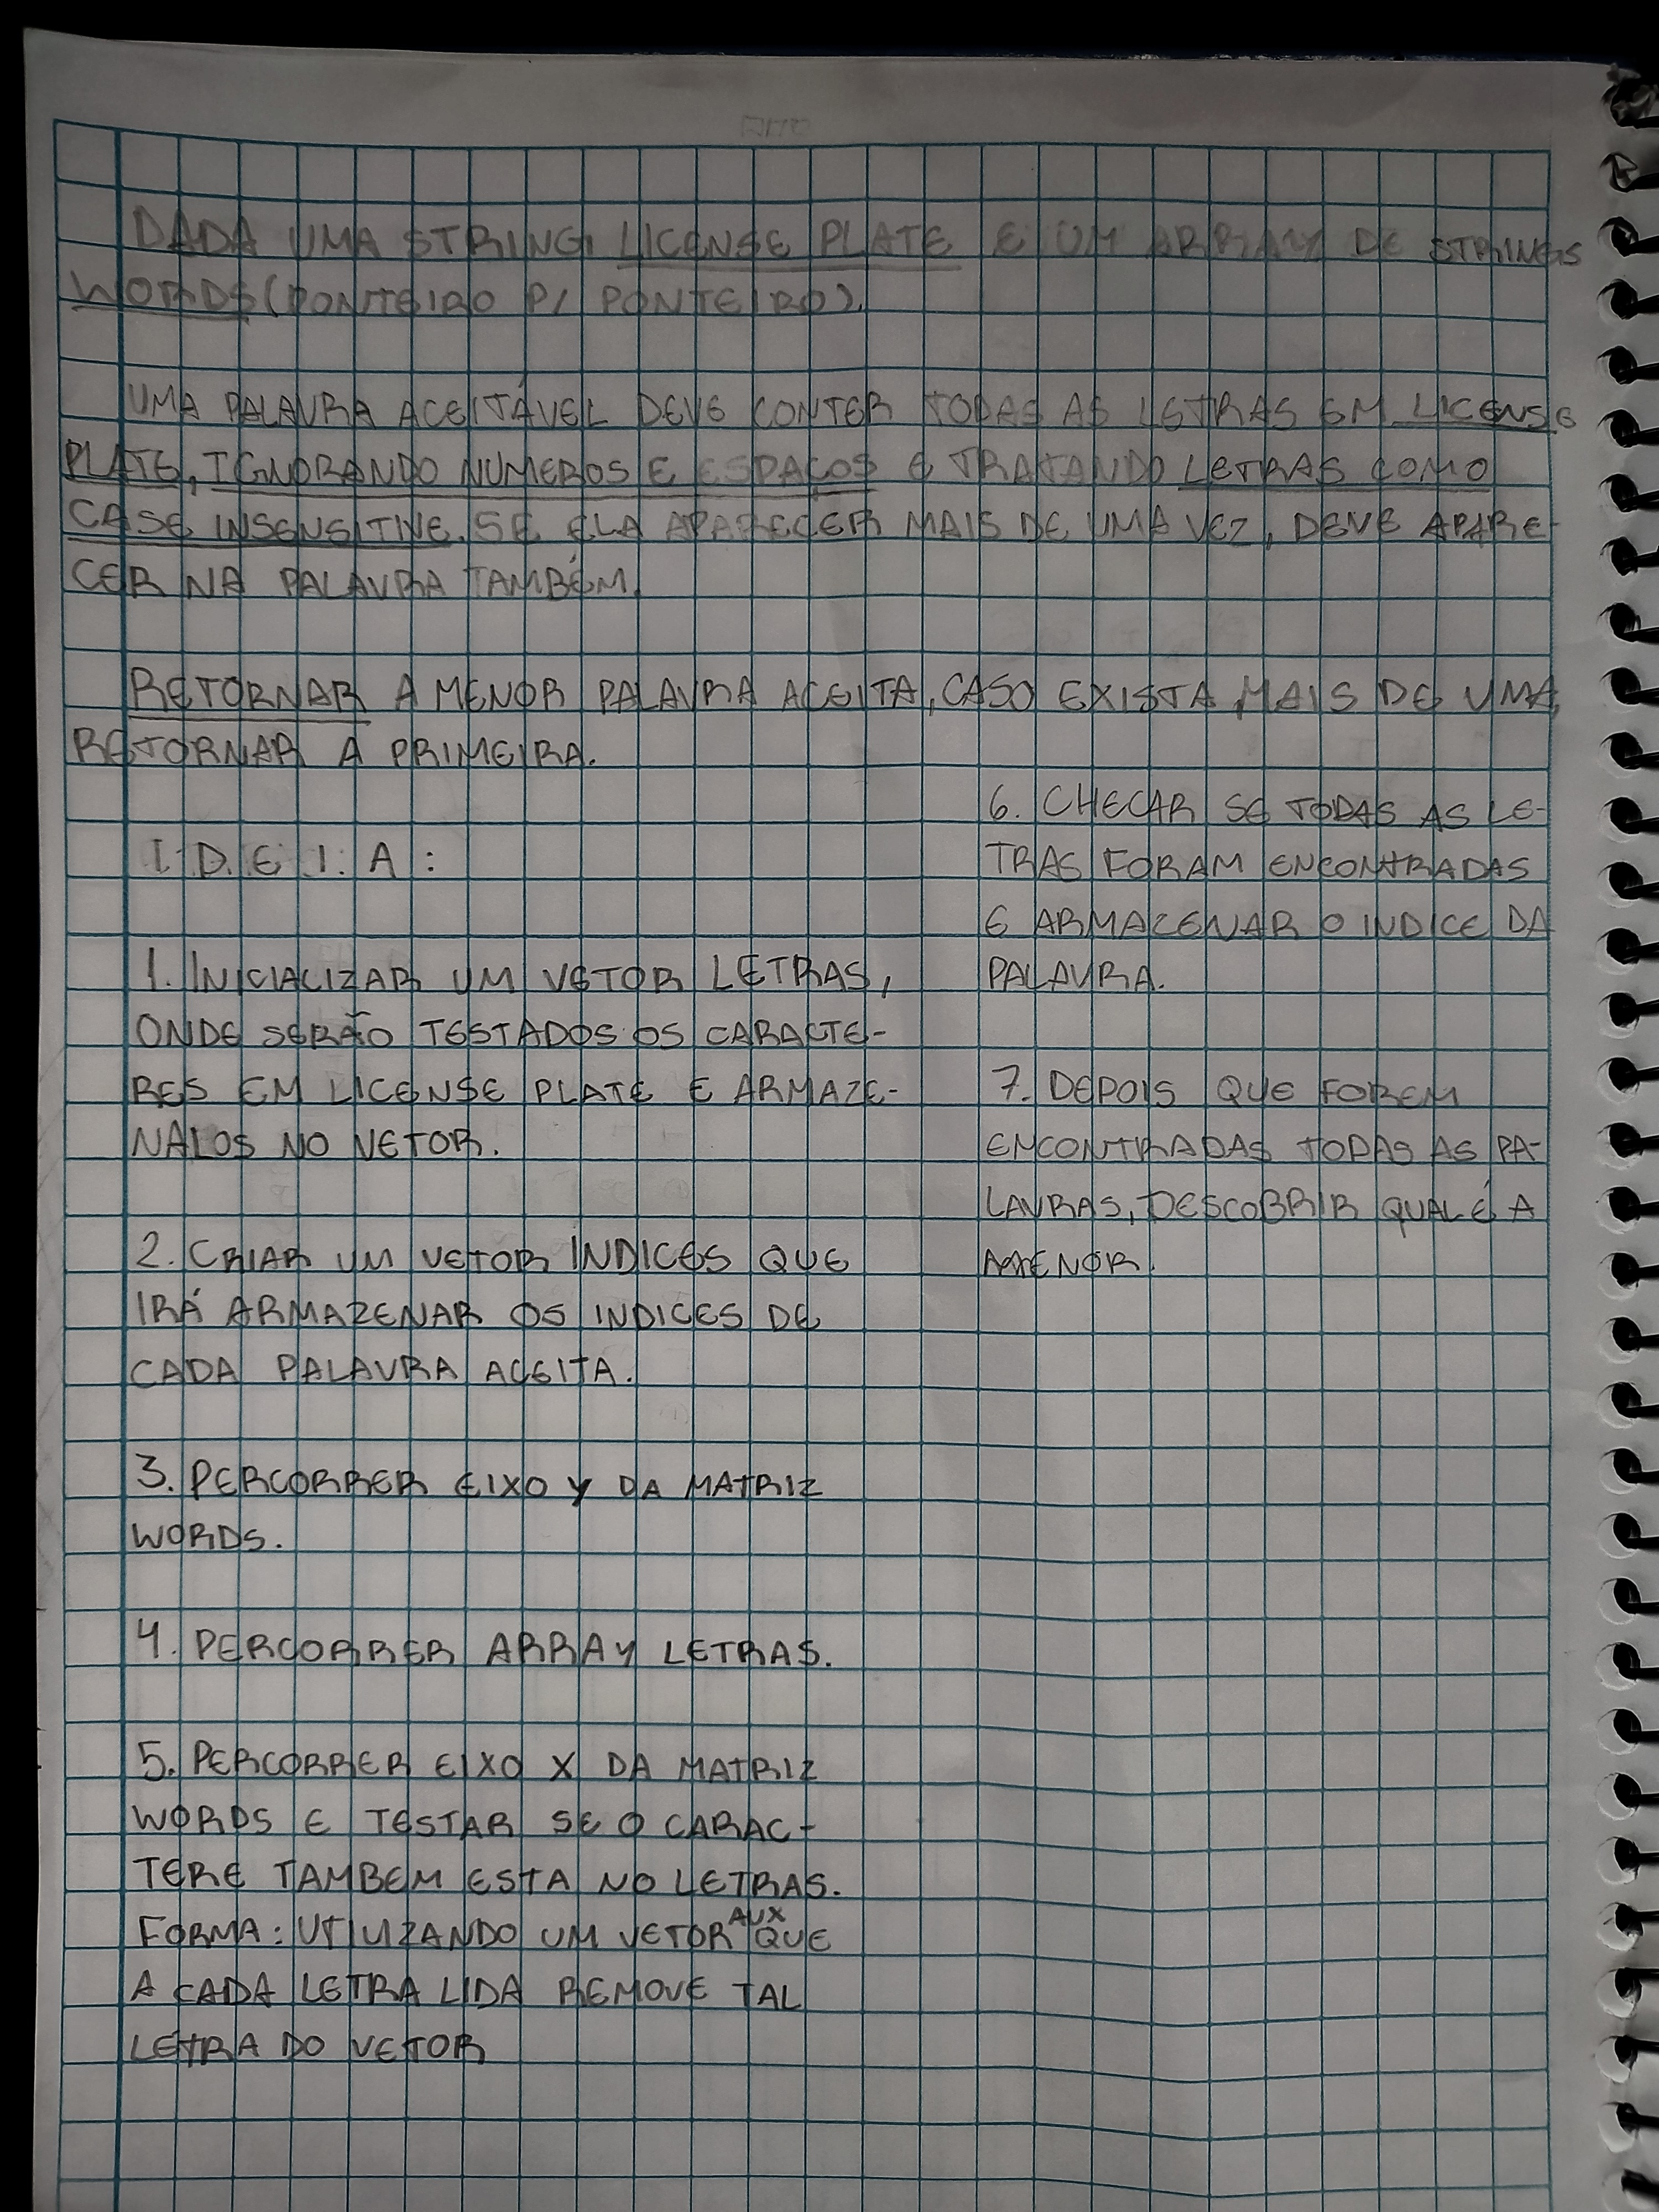 DADA UMA STRING LICENSE PLATE E UM ARRAY DE STRINGS
WORDS (PONTEIRO P/ PONTEIRO).
UMA PALAVRA ACEITÁVEL DEVE CONTER TODAS AS LETRAS EM LICENSE
PLATE, IGNORANDO NUMEROS E ESPAÇOS E TRATANDO LETRAS COMO
CASE INSENSITIVE. SE ELA APARECER MAIS DE UMA VEZ, DEVE APARE-
CER NA PALAVRA TAMBÉM.
RETORNAR A MENOR PALAVRA ACEITA, CASO EXISTA MAIS DE UMA,
RETORNAR A PRIMEIRA.
I. D. E. I. A:
1. INICIALIZAR UM VETOR LETRAS,
ONDE SERÃO TESTADOS OS CARACTE-
RES EM LICENSE PLATE E ARMAZE-
NALOS NO VETOR.
2. CRIAR UM VETOR INDICES QUE
IRÁ ARMAZENAR OS INDICES DE
CADA PALAVRA ACEITA.
3. PERCORRER EIXO Y DA MATRIZ
WORDS.
4. PERCORRER ARRAY LETRAS.
5. PERCORRER EIXO X DA MATRIZ
WORDS E TESTAR SE O CARAC-
TERE TAMBEM ESTA NO LETRAS.
FORMA: UTILIZANDO UM VETOR AUX QUE
A CADA LETRA LIDA REMOVE TAL
LETRA DO VETOR
6. CHECAR SE TODAS AS LE-
TRAS FORAM ENCONTRADAS
E ARMAZENAR O INDICE DA
PALAVRA.
7. DEPOIS QUE FOREM
ENCONTRADAS TODAS AS PA-
LAVRAS, DESCOBRIR QUAL É A
MENOR.